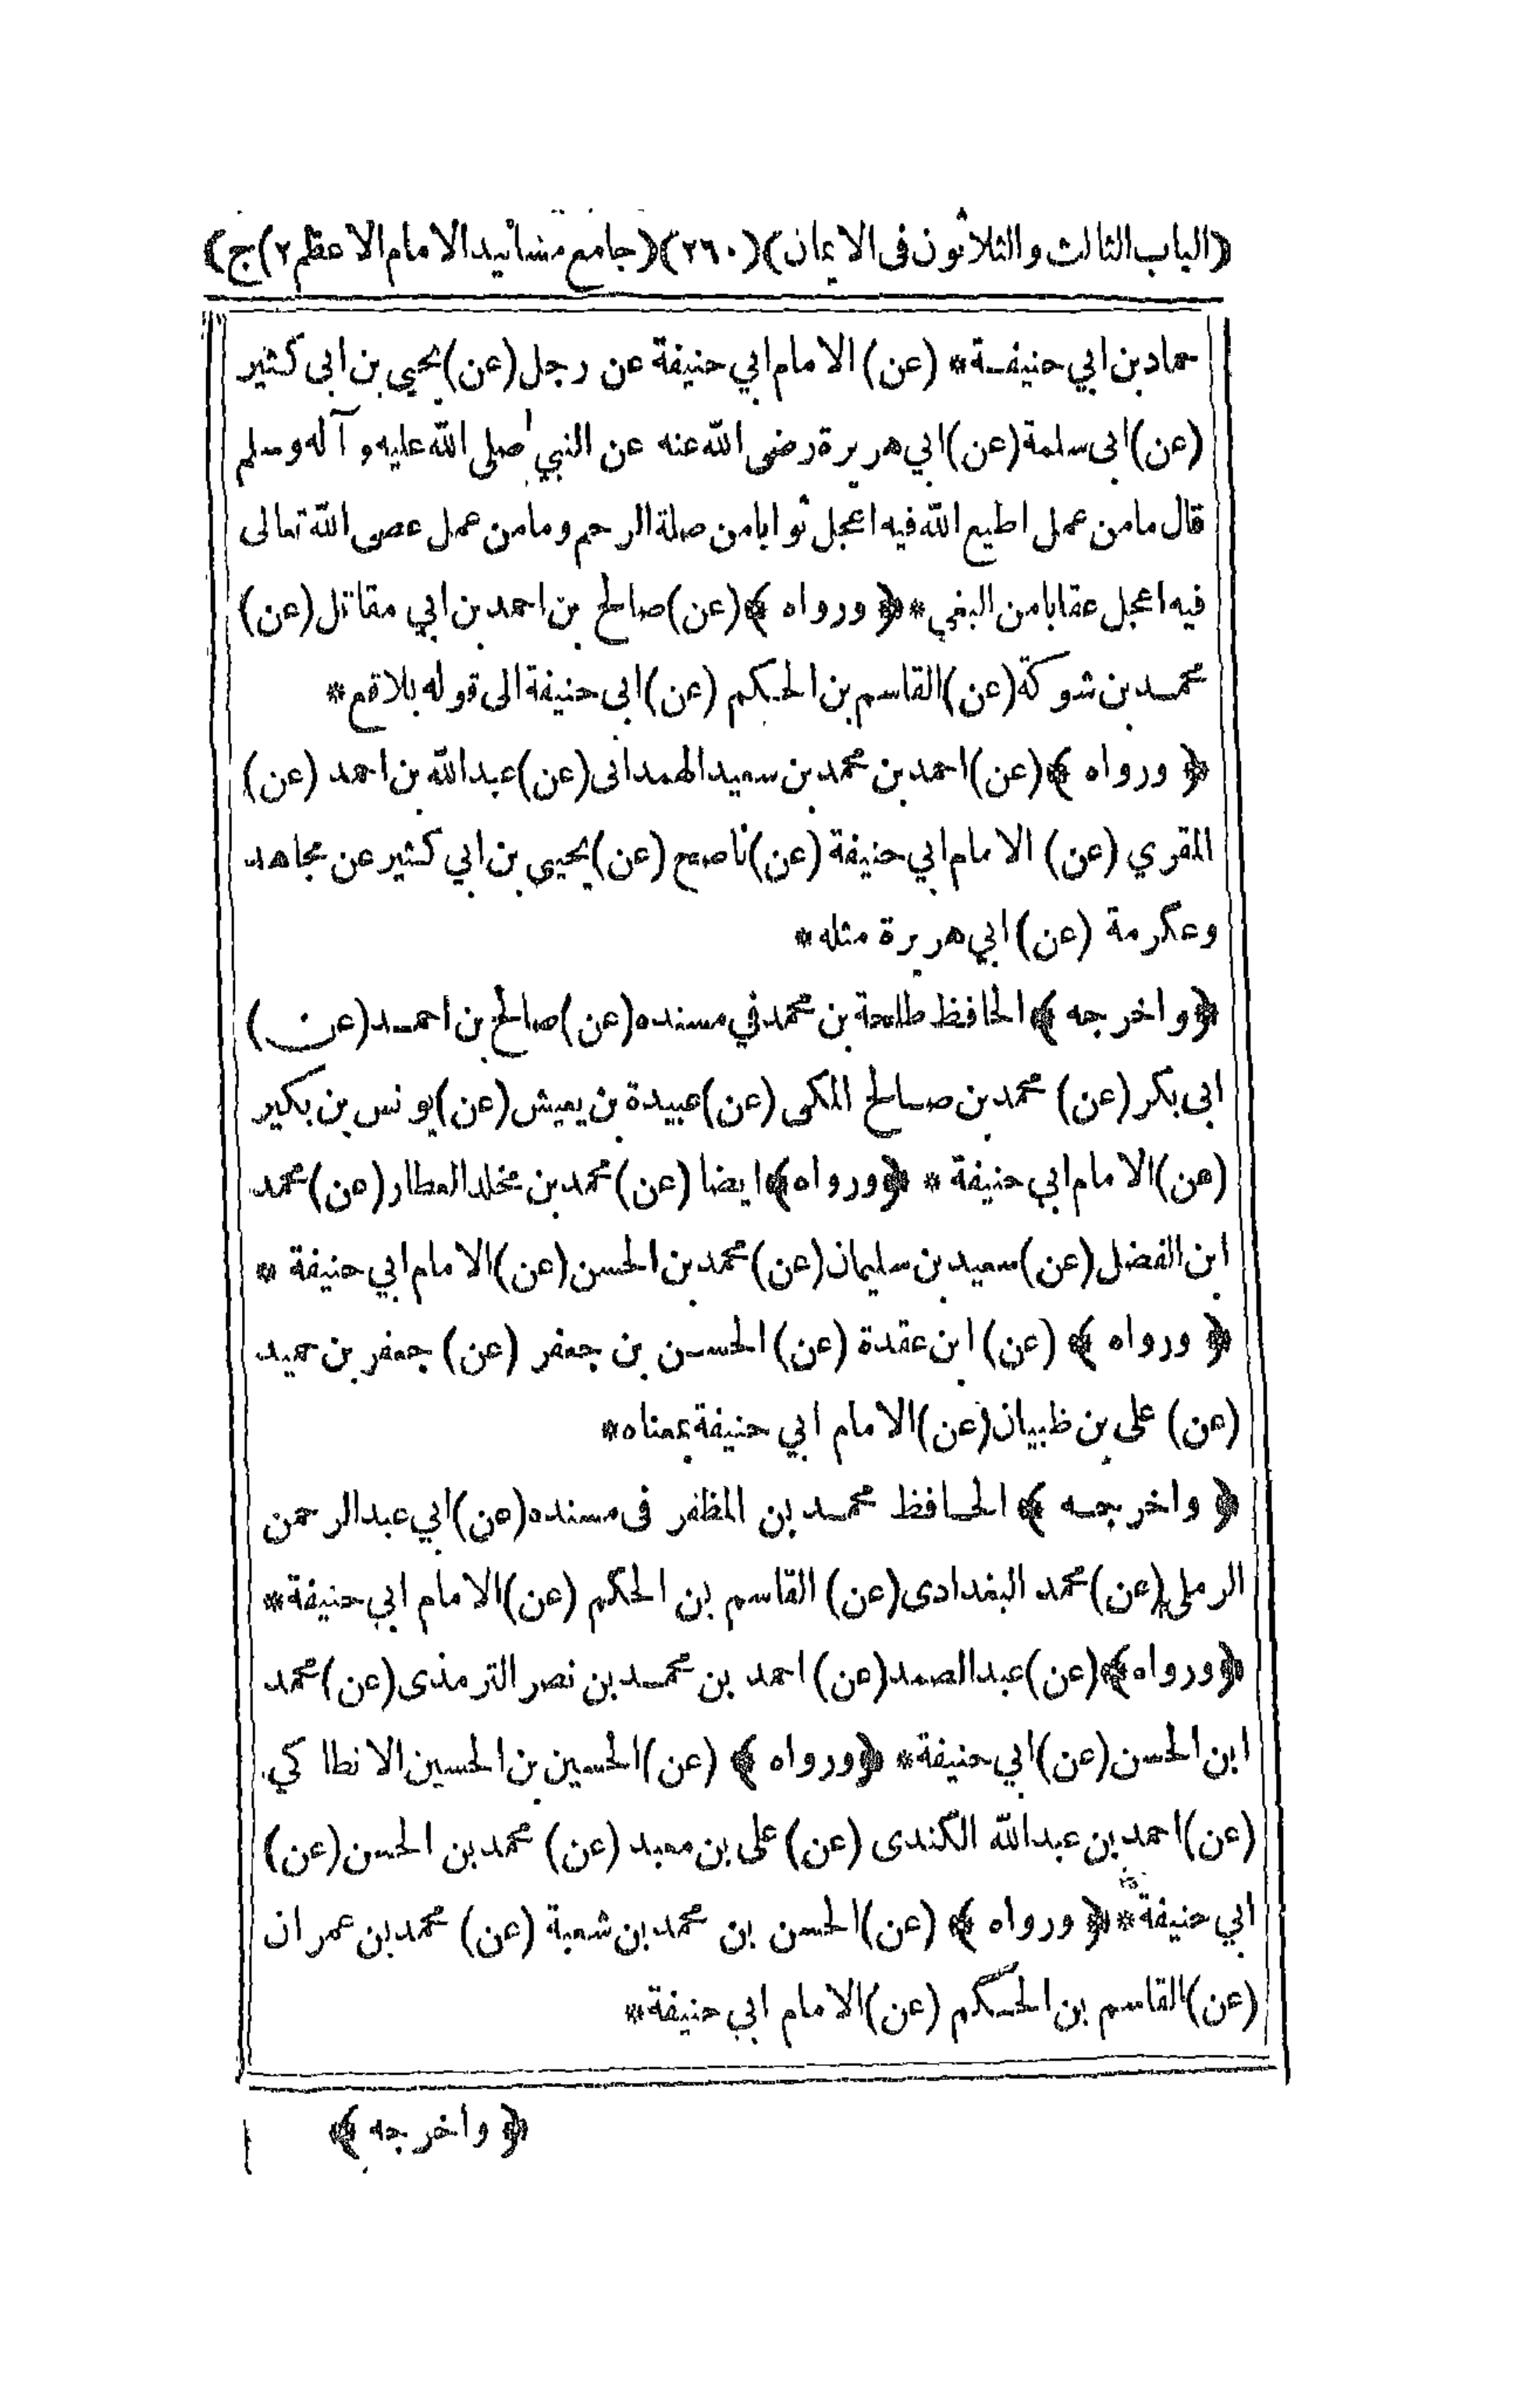 (الباب الثالث والثلاثون فى الايمان)(٢٦٠)(جامع مسانيد الامام الاعظم ٢)ج)
حماد بن ابي حنيفة* (عن) الامام ابي حنيفة عن رجل (عن) يحيى بن ابى كثير
(عن) ابى سلمة (عن) ابي هريرة رضى الله عنه عن النبي صلى الله عليه وآله وسلم
قال ما من عمل اطيع الله فيه اعجل ثوابا من صلة الرحم وما من عمل عصى الله تعالى
فيه اعجل عقابا من البغي * ﴿ ورواه ﴾ (عن) صالح بن احمد بن ابي مقاتل (عن)
محمد بن شوكة (عن) القاسم بن الحكم (عن) ابى حنيفة الى قوله بلاقع *
﴿ ورواه ﴾ (عن) احمد بن محمد بن سعيد الهمدانى (عن) عبد الله بن احمد (عن)
المقري (عن) الامام ابي حنيفة (عن) ناصح (عن) يحيى بن ابي كثير عن مجاهد
وعكرمة (عن) ابي هريرة مثله *
﴿ واخرجه ﴾ الحافظ طلحة بن محمد في مسنده (عن) صالح بن احمد (عن)
ابى بكر (عن) محمد بن صالح المكى (عن) عبيدة بن يعيش (عن) يونس بن بكير
(عن) الامام ابي حنيفة * ﴿ورواه﴾ ايضا (عن) محمد بن مخلد العطار (عن) محمد
ابن الفضل (عن) سعيد بن سليمان (عن) محمد بن الحسن (عن) الامام ابي حنيفة *
﴿ ورواه ﴾ (عن) ابن عقدة (عن) الحسن بن جعفر (عن) جعفر بن حميد
(عن) على بن ظبيان (عن) الامام ابي حنيفة بمعناه *
﴿ واخرجه ﴾ الحافظ محمد بن المظفر فى مسنده (عن) ابي عبد الرحمن
الرملي (عن) محمد البغدادى (عن) القاسم بن الحكم (عن) الامام ابي حنيفة *
﴿ورواه﴾ (عن) عبد الصمد (عن) احمد بن محمد بن نصر الترمذى (عن) محمد
ابن الحسن (عن) ابي حنيفة * ﴿ورواه ﴾ (عن) الحسين بن الحسين الانطاكي
(عن) احمد بن عبد الله الكندى (عن) على بن معبد (عن) محمد بن الحسن (عن)
ابي حنيفة * ﴿ ورواه ﴾ (عن) الحسن بن محمد بن شعبة (عن) محمد بن عمران
(عن) القاسم بن الحكم (عن) الامام ابي حنيفة *
﴿ واخرجه ﴾